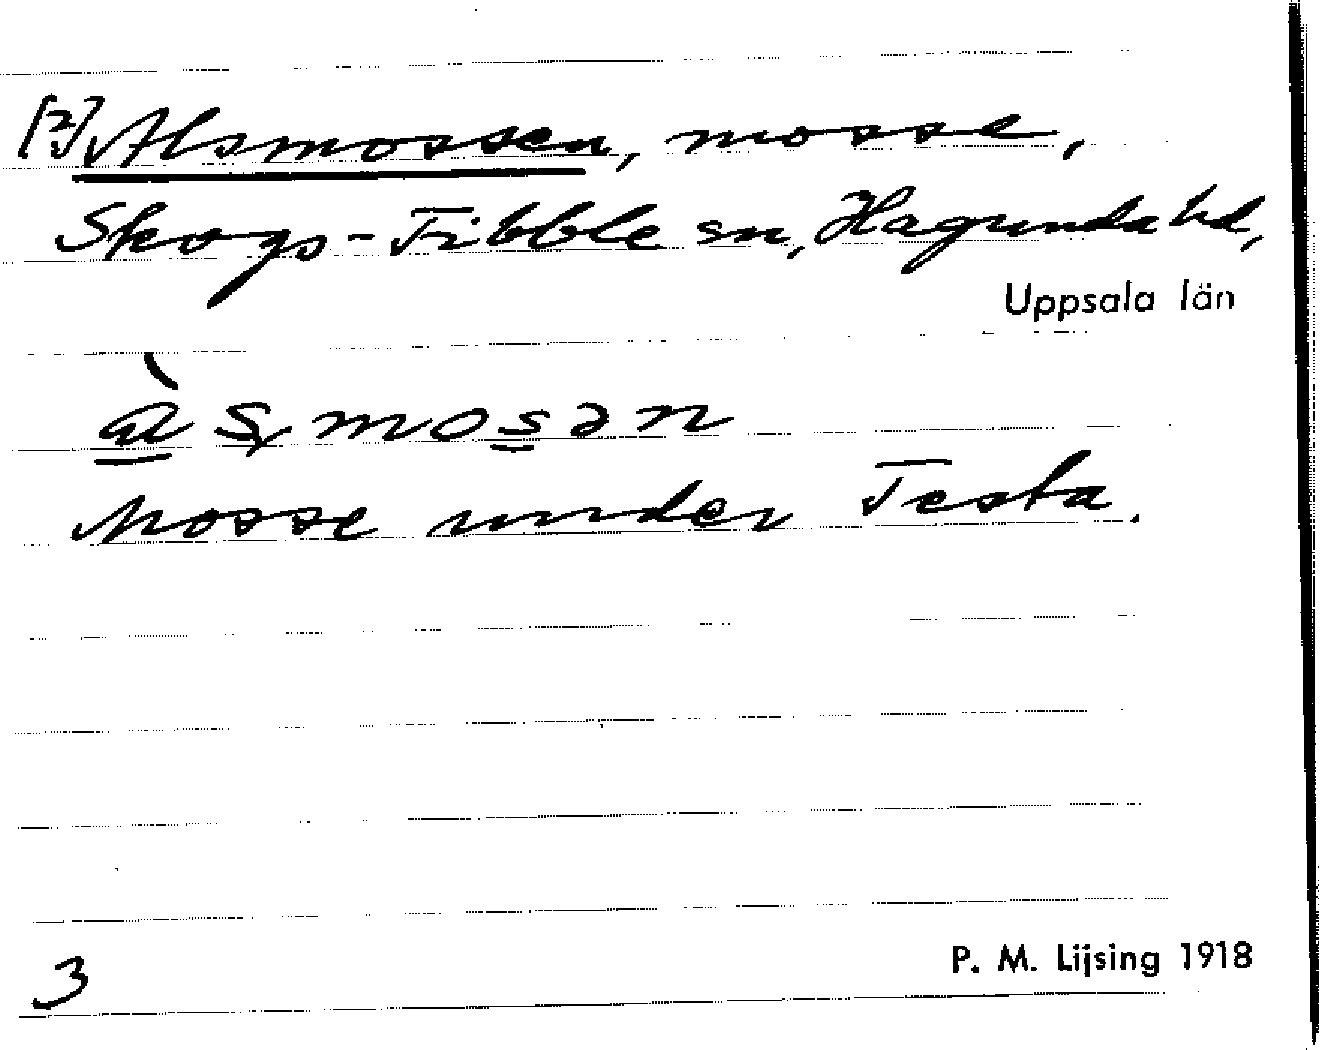 [?] Alsmossen, mosse,
Skogs-Tibble sn, Hagunda hd,
Uppsala län
àsmosən
Mosse under Testa.
3
P. M. Lijsing 1918